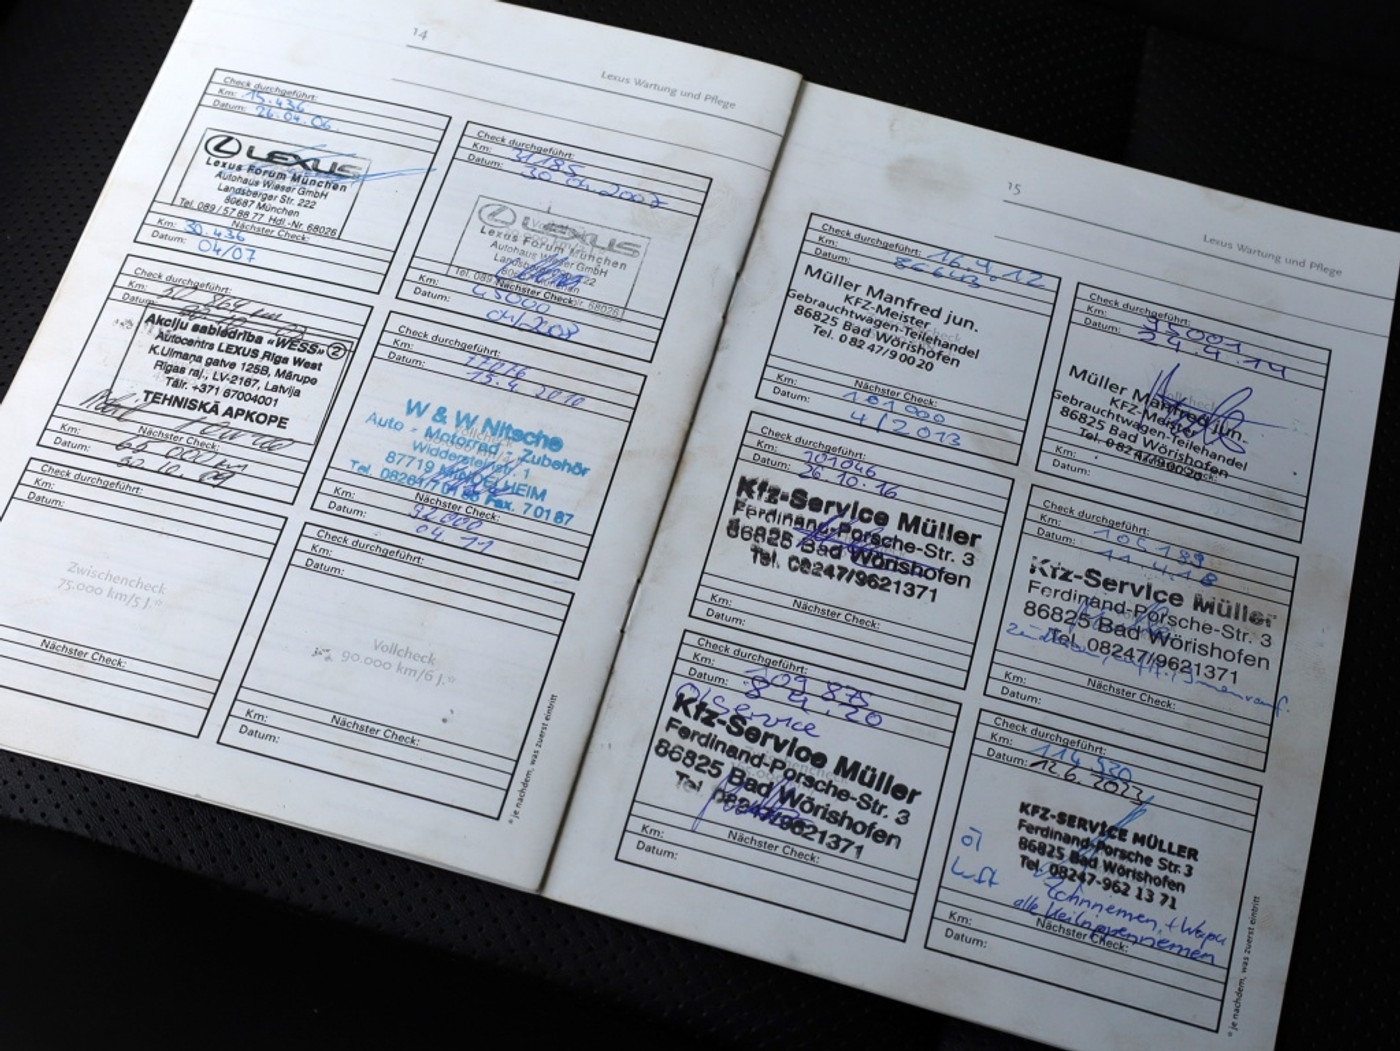 14
Lexus Wartung und Pflege
Check durchgeführt:
Km: 15.436
Datum: 26.04.06.
LEXUS
Lexus Forum München
Autohaus Wieser GmbH
Landsberger Str. 222
80687 München
Tel. 089 / 57 88 77 Hdl.-Nr. 68026
Nächster Check:
Km: 30.436
Datum: 04/07
Check durchgeführt:
Km: 31185
Datum: 30.04.2007
LEXUS
Lexus Forum München
Autohaus Wieser GmbH
Landsberger Str. 222
München
Tel. 089
68026
Nächster Check:
Km: 45000
Datum: 04/2008
Check durchgeführt:
Km:
Datum:
Akciju sabiedrība «WESS» 2
Autocentrs LEXUS Rīga West
K.Ulmaņa gatve 125B, Mārupe
Rīgas raj., LV-2167, Latvija
Tālr. +371 67004001
TEHNISKĀ APKOPE
Nächster Check:
Km: 60 000 km
Datum: 30.10.09
Check durchgeführt:
Km: 77076
Datum: 15.4. 2010
W & W Nitsche
Auto - Motorrad - Zubehör
87719 MINDELHEIM
Fax. 7 01 87
Nächster Check:
Km: 92.000
Datum: 04 11
Check durchgeführt:
Km:
Datum:
Zwischencheck
75.000 km/5 J.*
Nächster Check:
Check durchgeführt:
Km:
Datum:
Vollcheck
90.000 km/6 J.*
Nächster Check:
Km:
Datum:
* je nachdem, was zuerst eintritt
15
Lexus Wartung und Pflege
Check durchgeführt: 16.4.12
Km: 86643
Datum:
Müller Manfred jun.
KFZ-Meister
Gebrauchtwagen-Teilehandel
86825 Bad Wörishofen
Tel. 0 82 47/9 00 20
Nächster Check:
Km: 101 000
Datum: 4/2013
Check durchgeführt:
Km: 95001
Datum: 24.4.14
Müller Manfred jun.
KFZ-Meister
Gebrauchtwagen-Teilehandel
86825 Bad Wörishofen
Tel. 0 82 47/9 00 20
Km:
Datum:
Check durchgeführt:
Km: 101046
Datum: 26.10.16
Kfz-Service Müller
Ferdinand-Porsche-Str. 3
86825 Bad Wörishofen
Tel. 08247/9621371
Nächster Check:
Km:
Datum:
Check durchgeführt:
Km: 105199
Datum: 11.4.18
Kfz-Service Müller
Ferdinand-Porsche-Str. 3
86825 Bad Wörishofen
Tel. 08247/9621371
Nächster Check:
Km:
Datum:
Check durchgeführt:
Km: 109 875
Datum: 8.4.20
Ölservice
Kfz-Service Müller
Ferdinand-Porsche-Str. 3
86825 Bad Wörishofen
Tel. 08247/9621371
Nächster Check:
Km:
Datum:
Check durchgeführt:
Km: 114 530
Datum: 12.6.2023
KFZ-SERVICE MÜLLER
Ferdinand-Porsche Str. 3
86825 Bad Wörishofen
Tel. 08247-962 13 71
Öl
Luft
Zahnriemen + Wapu
alle Keilrippenriemen
Nächster Check:
Km:
Datum:
* je nachdem, was zuerst eintritt